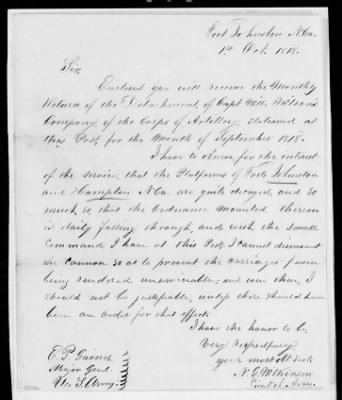 Fort Johnston N.Ca.
1st Oct. 1818.
Sir,
Enclosed you will receive the Monthly
Return of the Detachment, of Capt Will. Wilson's
Company, of the Corps of Artillery, stationed at
this Post, for the Month of September 1818.
I have to observe, for the interest
of the service, that the Platforms of Forts Johnston
and Hampton N.Ca. are quite decayed, and so
much so, that the Ordnance mounted thereon
is daily falling through, and with the small
command I have at this Post, I cannot dismount
the Cannon so as to prevent the carriages from
being rendered unserviceable; and even then, I
should not be justifiable, unless there should have
been an order for that effect.
I have the honor to be
Very respectfully
your most Obt Servt
E. P. Gaines
N. G. Wilkinson
Major Genl.
Lieut of Arty.
U. S. Army.